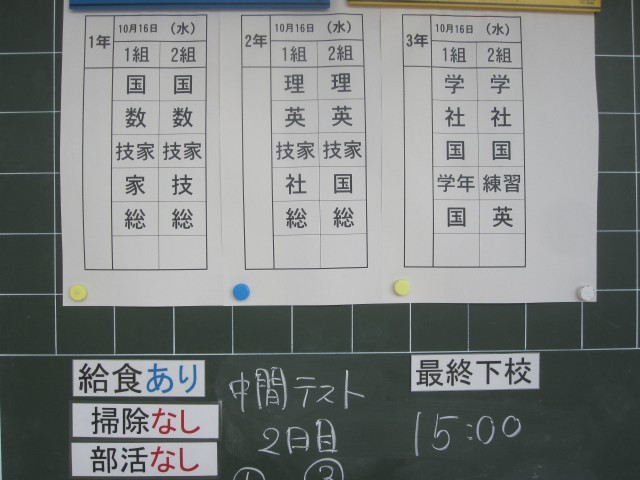 1年 10月16日 (水)
1組 2組
国 国
数 数
技家 技家
家 技
総 総
2年 10月16日 (水)
1組 2組
理 理
英 英
技家 技家
社 国
総 総
3年 10月16日 (水)
1組 2組
学 学
社 社
国 国
学年 練習
国 英
給食あり
掃除なし
部活なし
中間テスト
2日目
① ③
最終下校
15:00